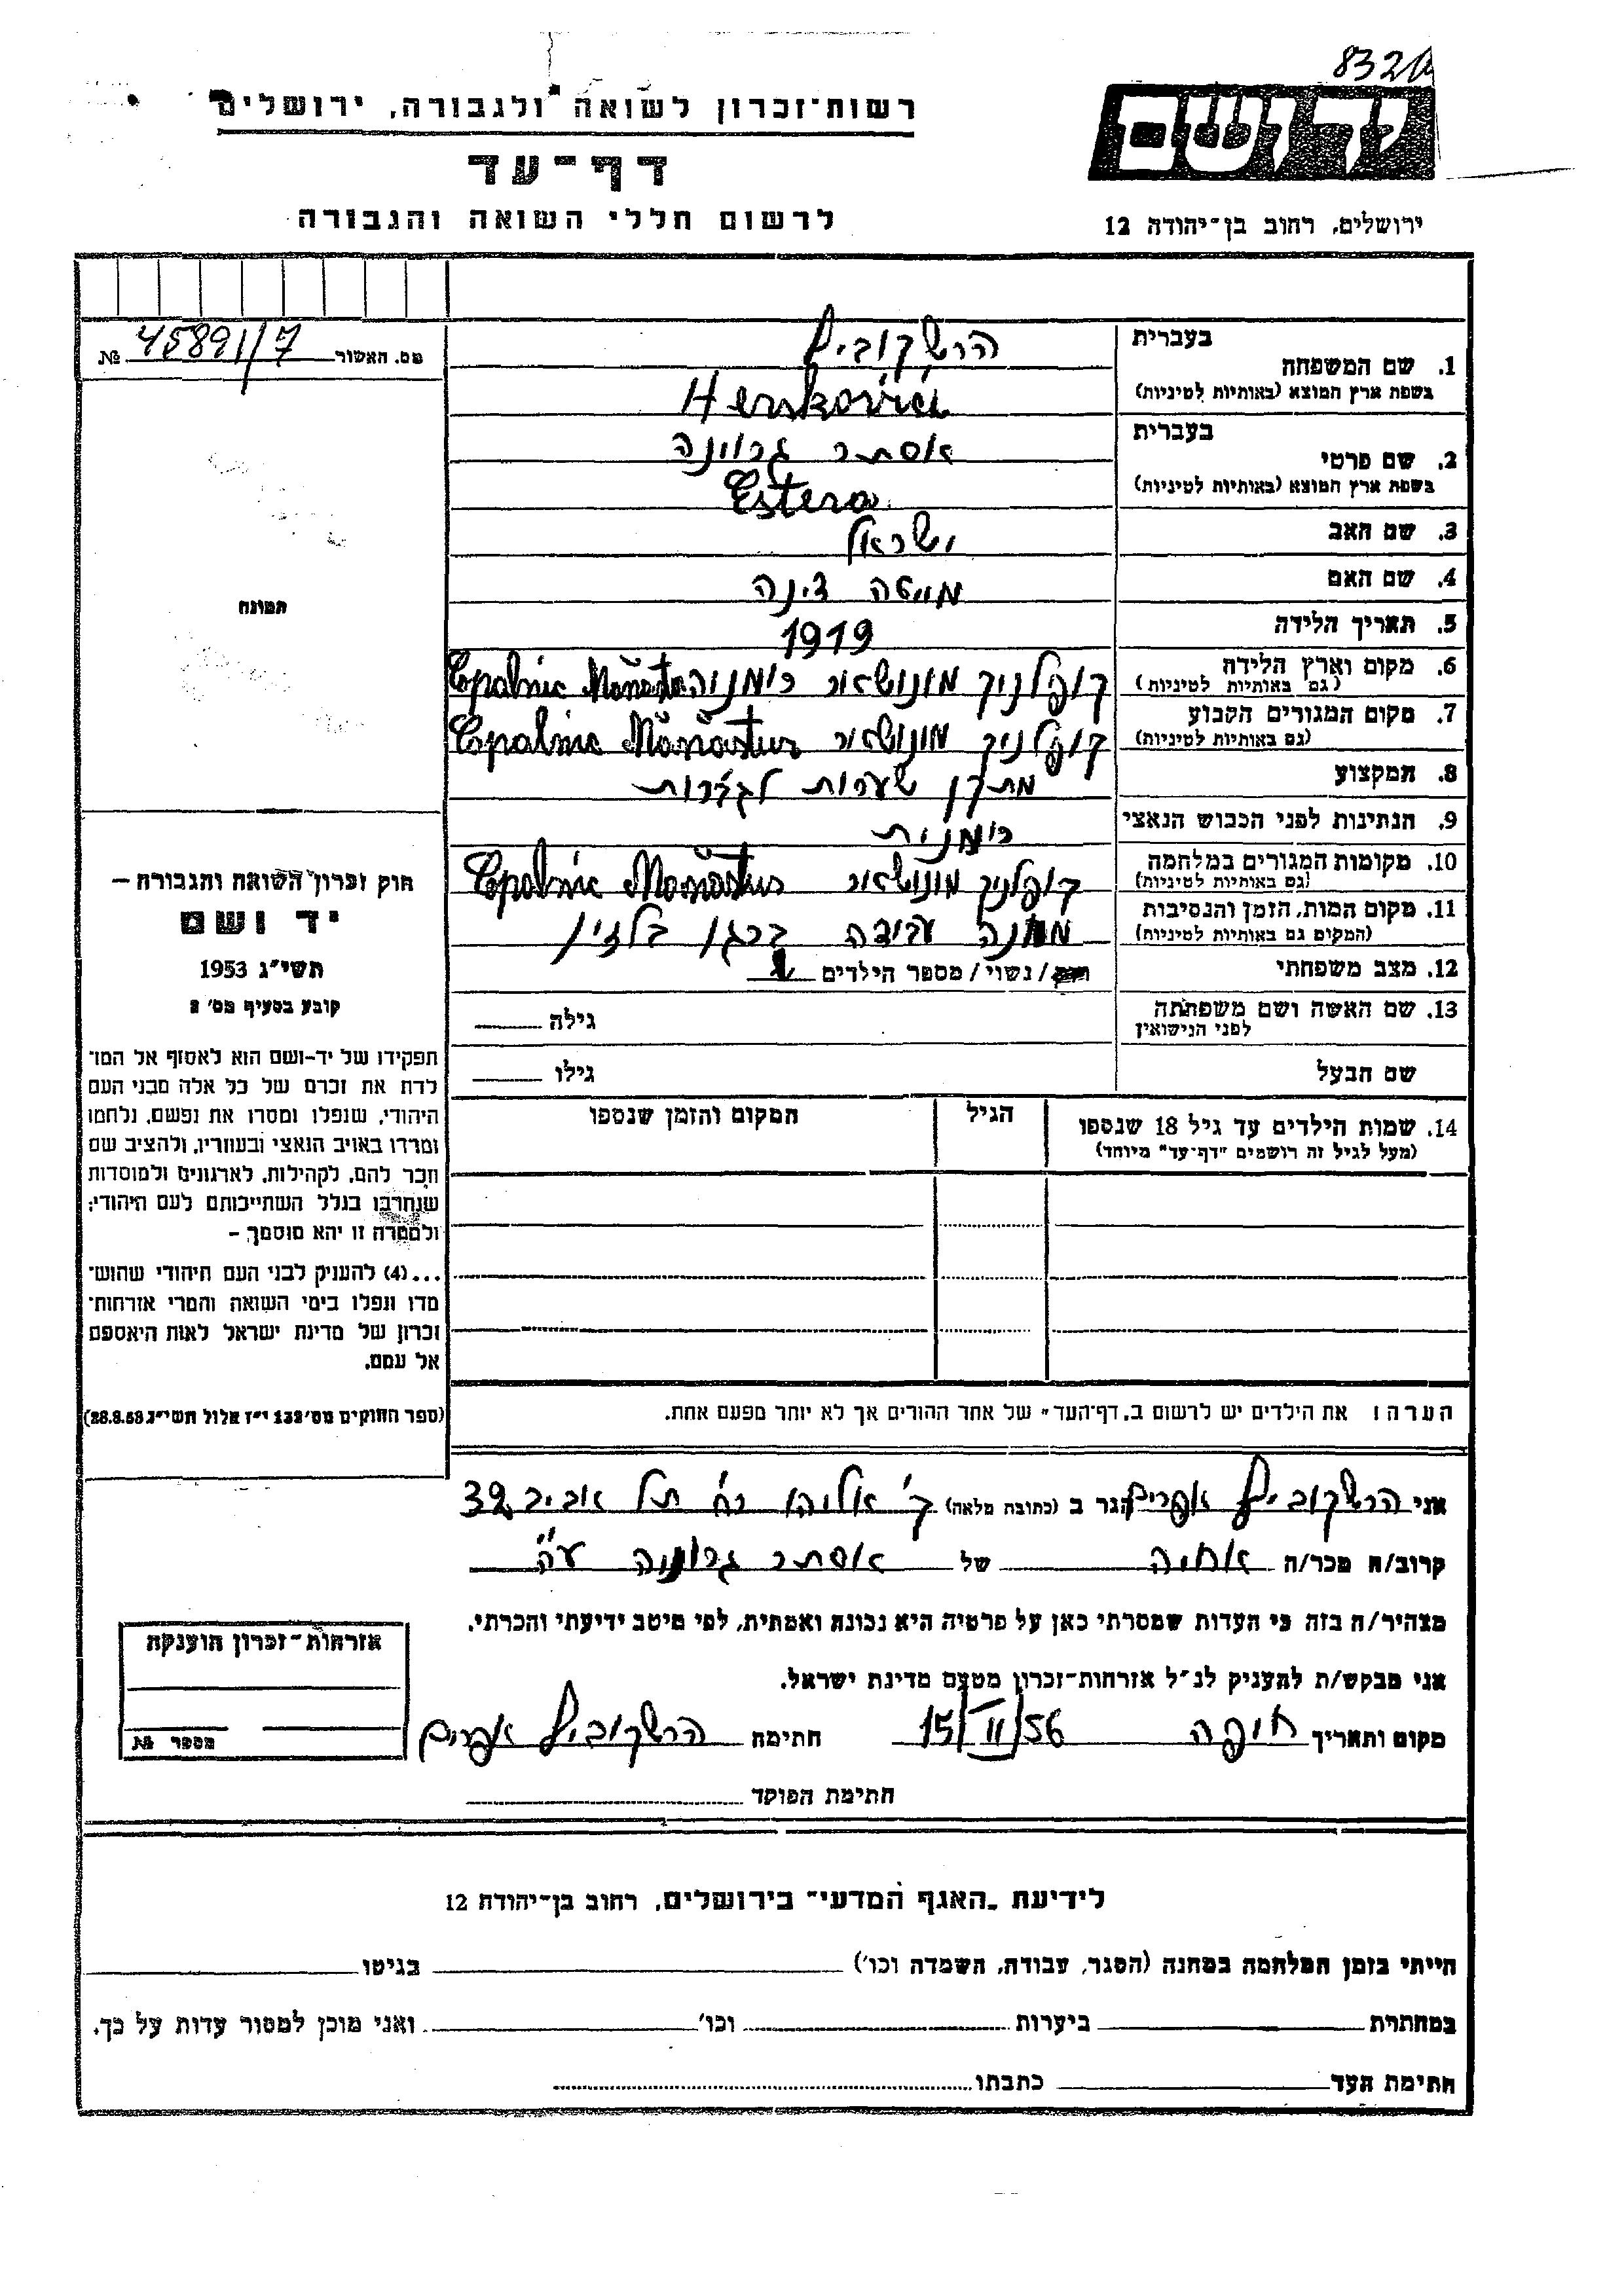 832
יד ושם
רשות-זכרון לשואה ולגבורה, ירושלים
דף-עד
ירושלים, רחוב בן-יהודה 12
לרשום חללי השואה והגבורה
מס. האשור 45891/7 №
תמונה
חוק זכרון השואה והגבורה –
יד ושם
תשי״ג 1953
קובע בסעיף מס׳ 2
תפקידו של יד-ושם הוא לאסוף אל המו־
לדת את זכרם של כל אלה מבני העם
היהודי, שנפלו ומסרו את נפשם, נלחמו
ומרדו באויב הנאצי ובעוזריו, ולהציב שם
וזכר להם, לקהילות, לארגונים ולמוסדות
שנחרבו בגלל השתייכותם לעם היהודי;
ולמטרה זו יהא מוסמך –
...(4) להעניק לבני העם היהודי שהוש־
מדו ונפלו בימי השואה והמרי אזרחות־
זכרון של מדינת ישראל לאות היאספם
אל עמם.
(ספר החוקים מס׳ 132 י״ז אלול תשי״ג 28.8.53)
1. שם המשפחה בעברית הרשקוביץ
בשפת ארץ המוצא (באותיות לטיניות) Herskovici
2. שם פרטי בעברית אסתר גרוינה
בשפת ארץ המוצא (באותיות לטיניות) Estera
3. שם האב ישראל
4. שם האם מייטה דינה
5. תאריך הלידה 1919
6. מקום וארץ הלידה (גם באותיות לטיניות) קופלניק מונושאור רומניה Copalnic Mănăstur
7. מקום המגורים הקבוע (גם באותיות לטיניות) קופלניק מונושאור Copalnic Mănăstur
8. המקצוע מתקן שערות לגברות
9. הנתינות לפני הכבוש הנאצי רומנית
10. מקומות המגורים במלחמה (גם באותיות לטיניות) קופלניק מונושאור Copalnic Mănăstur
11. מקום המות, הזמן והנסיבות (המקום גם באותיות לטיניות) מחנה עבודה ברגן בלזין
12. מצב משפחתי רווק/ נשוי/ מספר הילדים
13. שם האשה ושם משפחתה לפני הנישואין גילה
שם הבעל גילו
14. שמות הילדים עד גיל 18 שנספו הגיל המקום והזמן שנספו
(מעל לגיל זה רושמים "דף-עד" מיוחד)
הערה: את הילדים יש לרשום ב"דף-העד" של אחד ההורים אך לא יותר מפעם אחת.
אני הרשקוביץ אפרים הגר ב (כתובת מלאה) ק׳ אליהו רח׳ תל אביב 32
קרוב/ה מכר/ה אחיה של אסתר גרוינה ע״ה
מצהיר/ה בזה כי העדות שמסרתי כאן על פרטיה היא נכונה ואמתית, לפי מיטב ידיעתי והכרתי.
אני מבקש/ת להעניק לנ״ל אזרחות-זכרון מטעם מדינת ישראל.
מקום ותאריך חיפה 15/II/56 חתימה הרשקוביץ אפרים
חתימת הפוקד
אזרחות-זכרון הוענקה
מספר №
לידיעת "האגף המדעי" בירושלים, רחוב בן-יהודה 12
הייתי בזמן המלחמה במחנה (הסגר, עבודה, השמדה וכו׳) בגיטו
במחתרת ביערות וכו׳ ואני מוכן למסור עדות על כך.
חתימת העד כתבתו